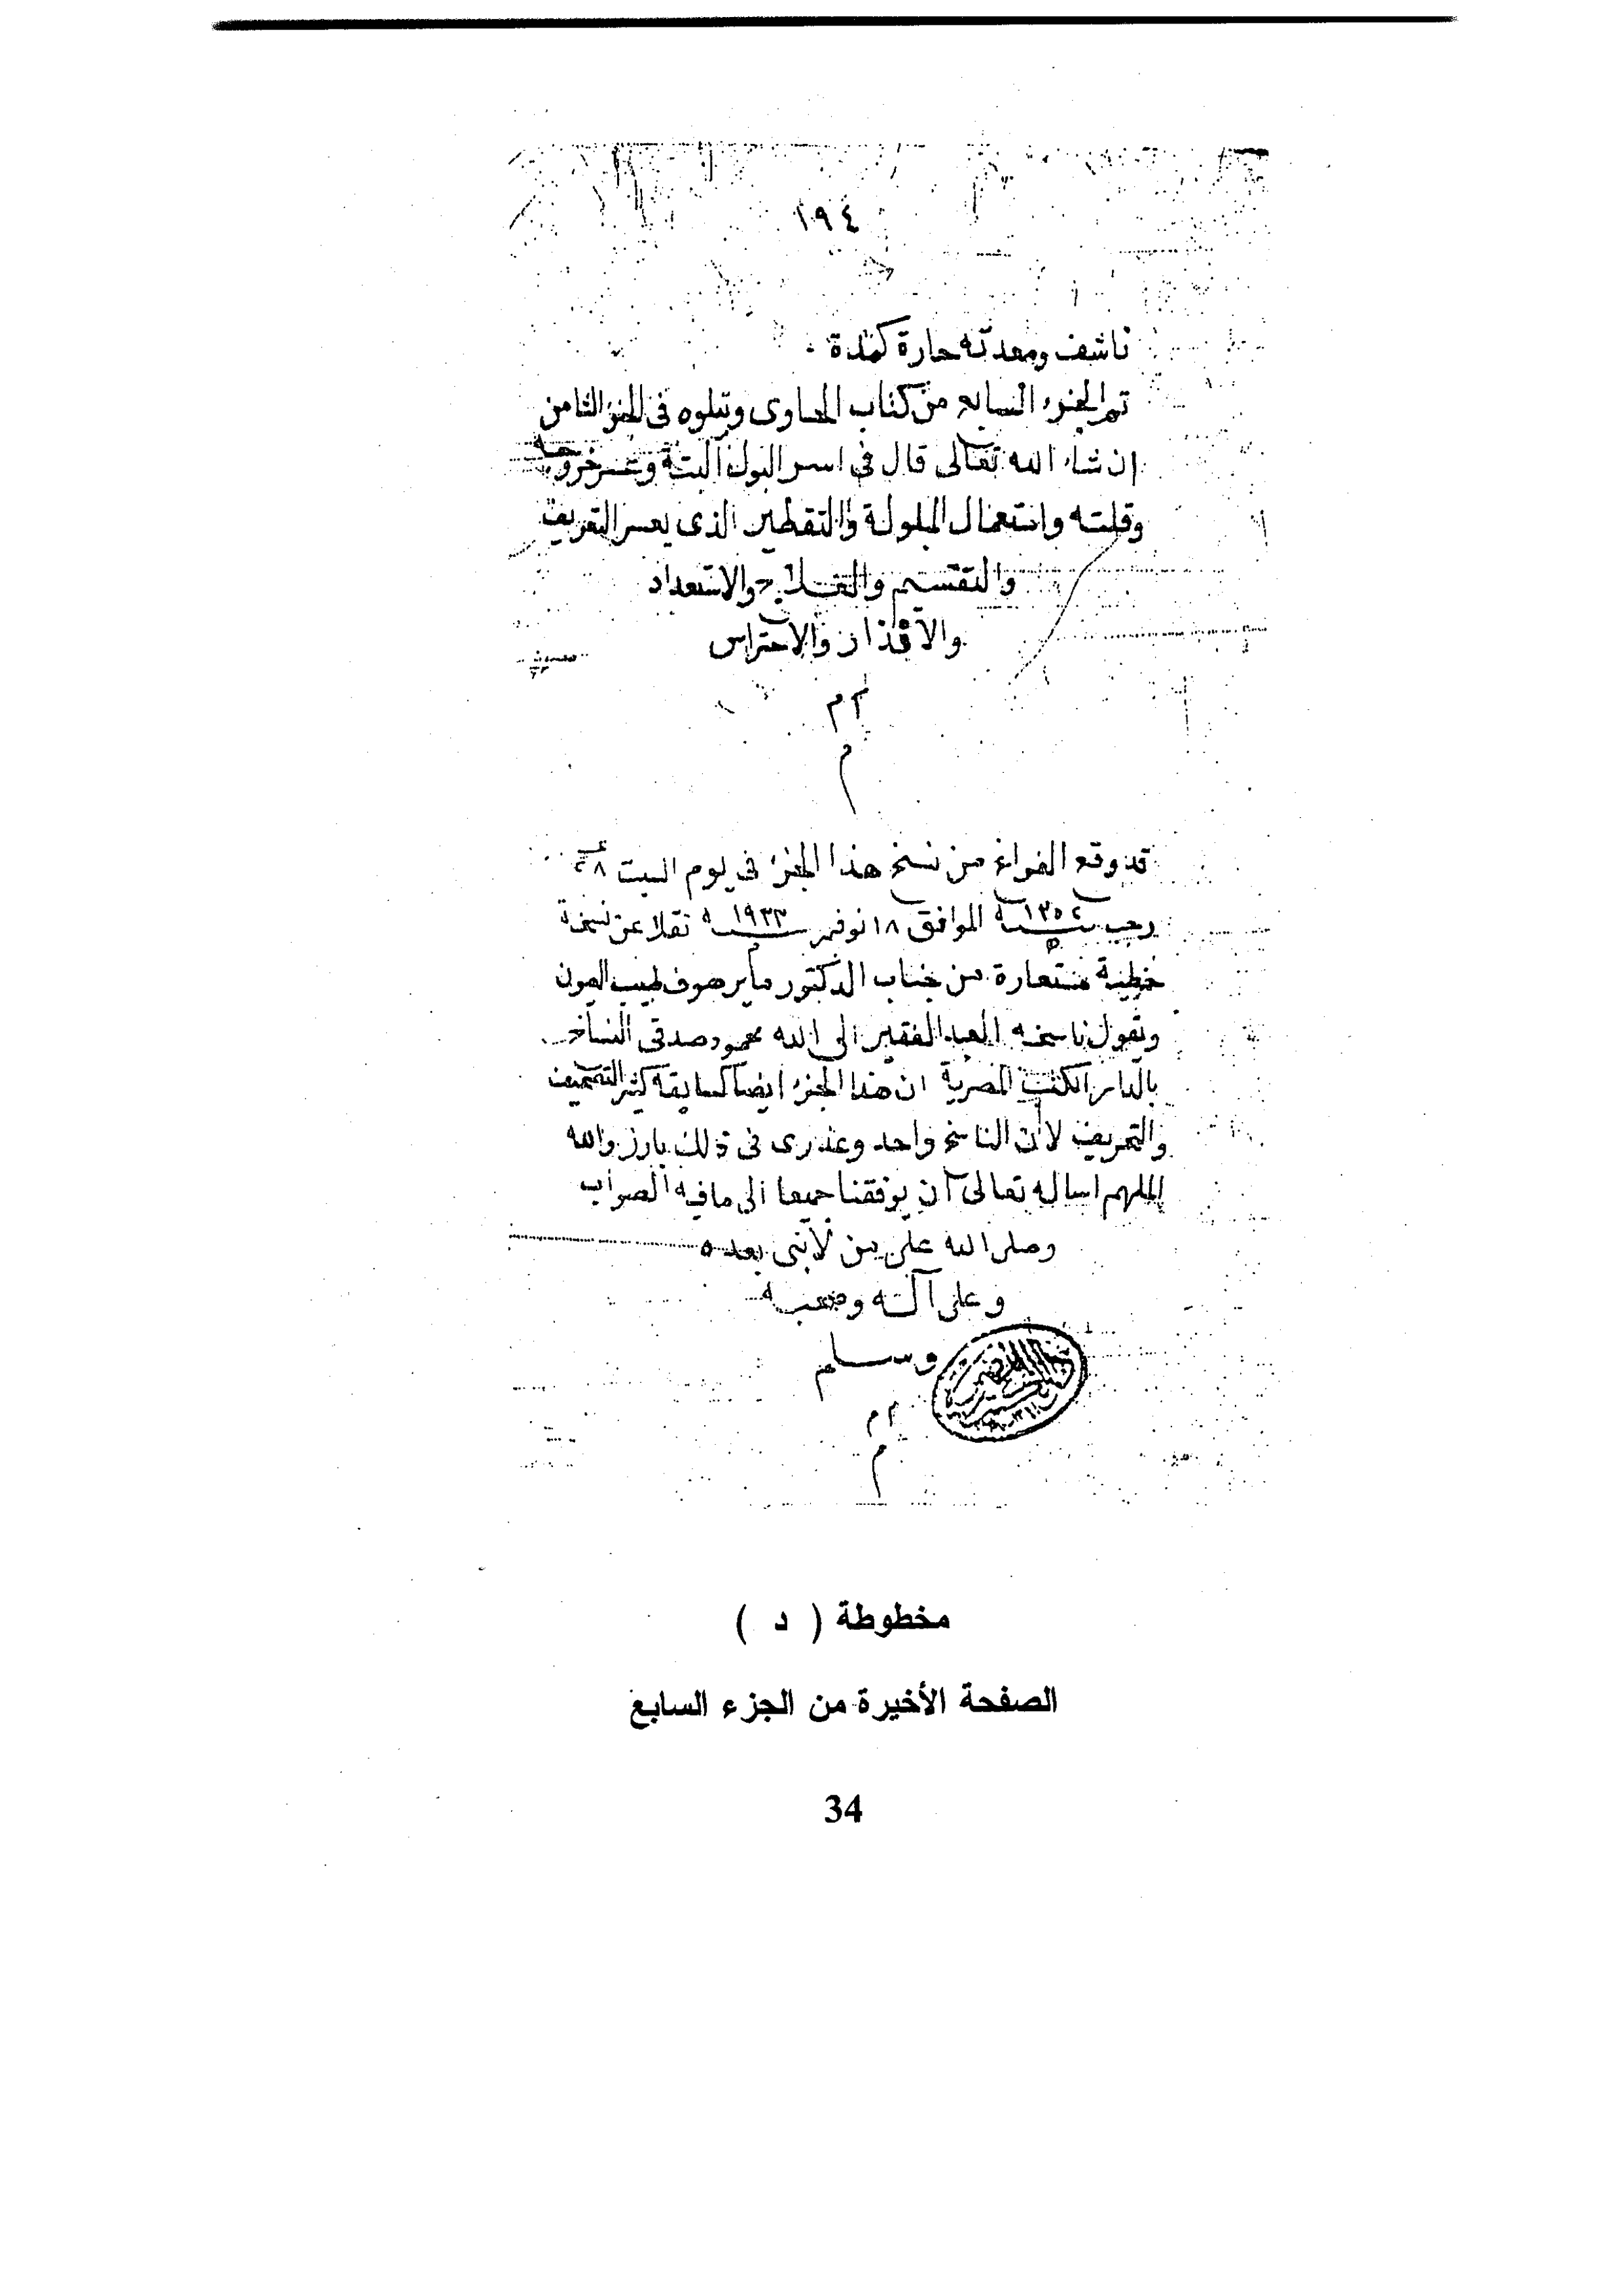 ١٩٤
ناشف ومعدته حارة كمدة .
تم الجزء السابع من كتاب الحاوى ويتلوه فى الجزء الثامن
ان شاء الله تعالى قال فى اسر البول البتة وعسر خروجه
وقلته واستعمال المبلولة والتقطير الذى يعسر التعريف
والتقسيم والعلاج والاستعداد
والانذار والاحتراس
ام
م
قد وقع الفراغ من نسخ هذا الجزء فى يوم السبت
رجب سنة ١٣٥٢ ه الموافق ١٨ نوفمبر سنة ١٩٣٣ م نقلا عن نسخة
خطية مستعارة من جناب الدكتور مايرهوف طبيب العيون
ويقول ناسخه العبد الفقير الى الله محمود صدقى النساخ
بالدار الكتب المصرية ان هذا الجزء ايضا كسابقه كثير التصحيف
والتحريف لأن الناسخ واحد وعذرى فى ذلك بارز والله
الملهم اساله تعالى أن يوفقنا جميعا الى مافيه الصواب
وصلى الله على من لا نبى بعده
وعلى آله وصحبه
وسلم
ام
م
مخطوطة ( د )
الصفحة الأخيرة من الجزء السابع
34